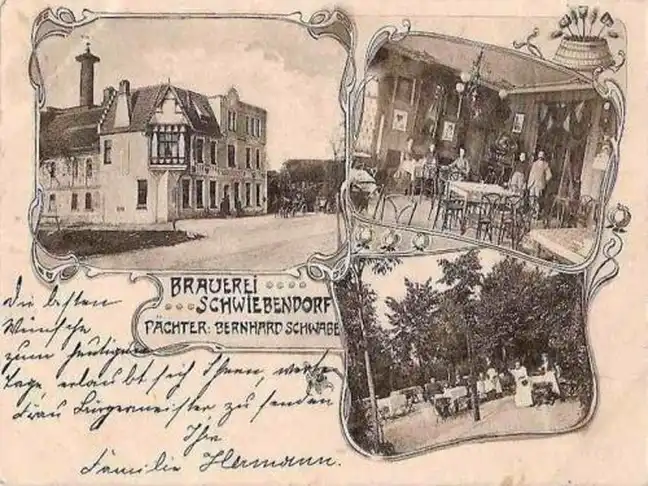 BRAUEREI
SCHWIEBENDORF
PÄCHTER: BERNHARD SCHWABE
Die besten
Wünsche
zum heutigen
Tage, erlaubt sich Ihnen, werte
Frau Bürgermeister zu senden
Ihre
Familie Hermann.